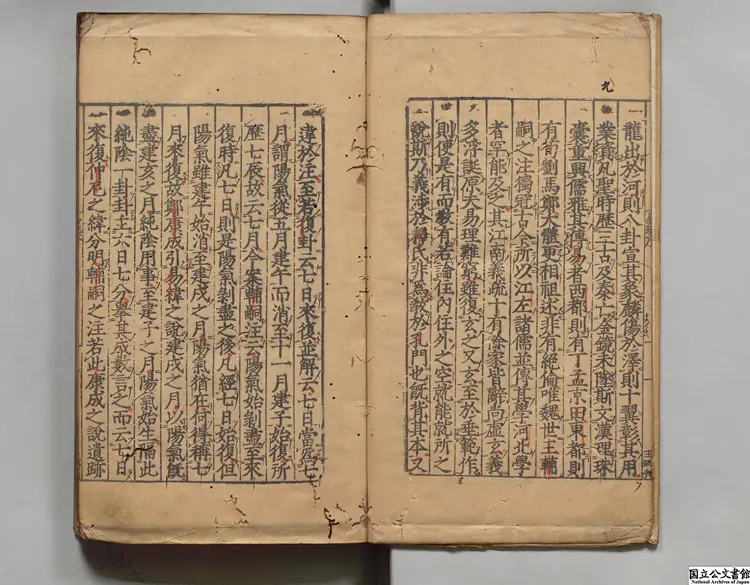 九
龍出於河則八卦宣其象麟傷於澤則十翼彰其用
業資凡聖時歴三古及秦亡金鏡未墜斯文漢理珠
囊重興儒雅其傳易者西都則有丁孟京田東都則
有荀劉馬鄭大體更相祖述非有絶倫唯魏世王輔
嗣之注獨冠古今所以江左諸儒並傳其學河北學
者罕能及之其江南義疏十有餘家皆辭尚虚玄義
多浮誕原夫易理難窮雖復玄之又玄至於垂範作
則便是有而敎有若論住内住外之空就能就所之
說斯乃義渉於釋氏非爲敎於孔門也旣背其本又
違於注至若復卦云七日來復並解云七日當爲七
月謂陽氣從五月建午而消至十一月建子始復所
歴七辰故云七月今案輔嗣注云陽氣始剥盡至來
復時凡七日則是陽氣剥盡之後凡經七日始復但
陽氣雖建午始消至建戌之月陽氣猶在何得稱七
月來復故鄭康成引易緯之說建戌之月以陽氣旣
盡建亥之月純陰用事至建子之月陽氣始生隔此
純陰一卦卦主六日七分舉其成數言之而云七日
來復仲尼之緯分明輔嗣之注若此康成之說遺跡
国立公文書館
National Archives of Japan